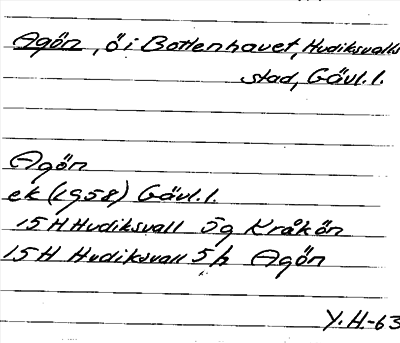 Agön, ö i Bottenhavet, Hudiksvalls
stad, Gävl.l.
Agön
ek (1958) Gävl.l.
15 H Hudiksvall 5g Kråkön
15 H Hudiksvall 5h Agön
Y.H.-63